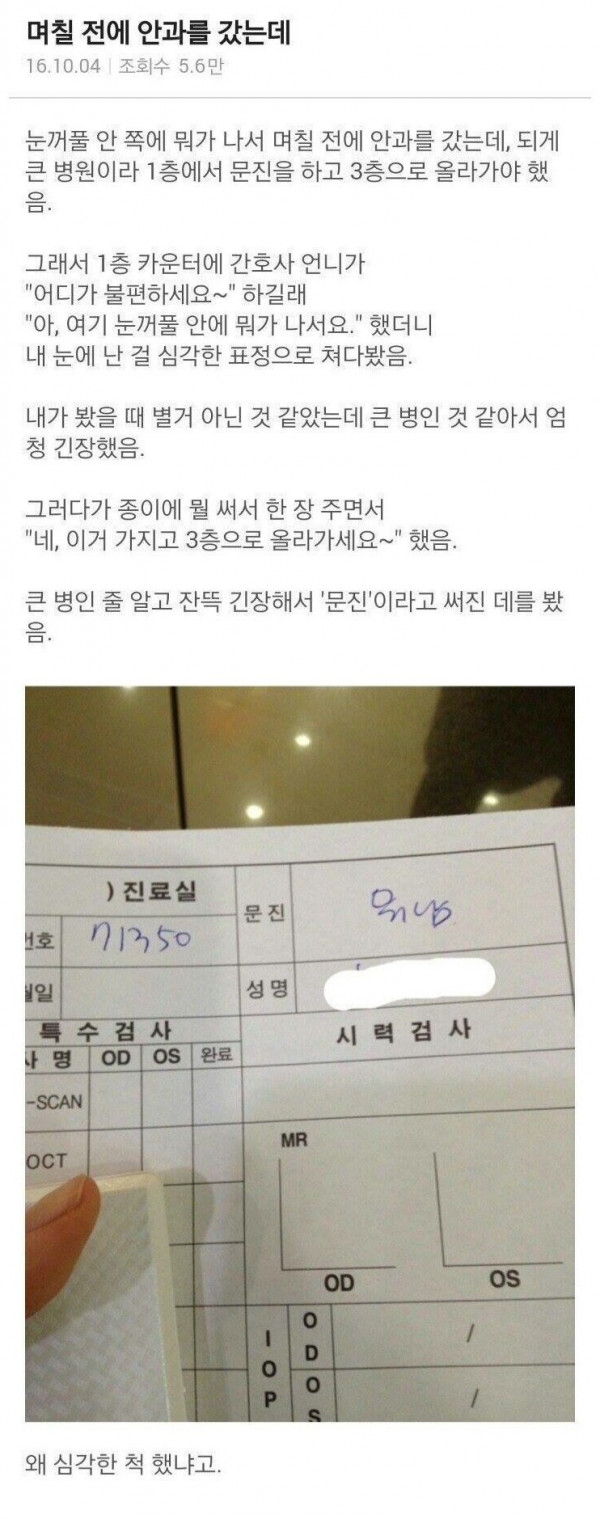 며칠 전에 안과를 갔는데
16.10.04 | 조회수 5.6만
눈꺼풀 안 쪽에 뭐가 나서 며칠 전에 안과를 갔는데, 되게
큰 병원이라 1층에서 문진을 하고 3층으로 올라가야 했
음.
그래서 1층 카운터에 간호사 언니가
"어디가 불편하세요~" 하길래
"아, 여기 눈꺼풀 안에 뭐가 나서요." 했더니
내 눈에 난 걸 심각한 표정으로 쳐다봤음.
내가 봤을 때 별거 아닌 것 같았는데 큰 병인 것 같아서 엄
청 긴장했음.
그러다가 종이에 뭘 써서 한 장 주면서
"네, 이거 가지고 3층으로 올라가세요~" 했음.
큰 병인 줄 알고 잔뜩 긴장해서 '문진'이라고 써진 데를 봤
음.
) 진료실
문진
뭐남
번호 71350
월일
성명
특수검사
시력검사
사 명 OD OS 완료
-SCAN
OCT
MR
OD OS
IOP
OD /
OS /
왜 심각한 척 했냐고.